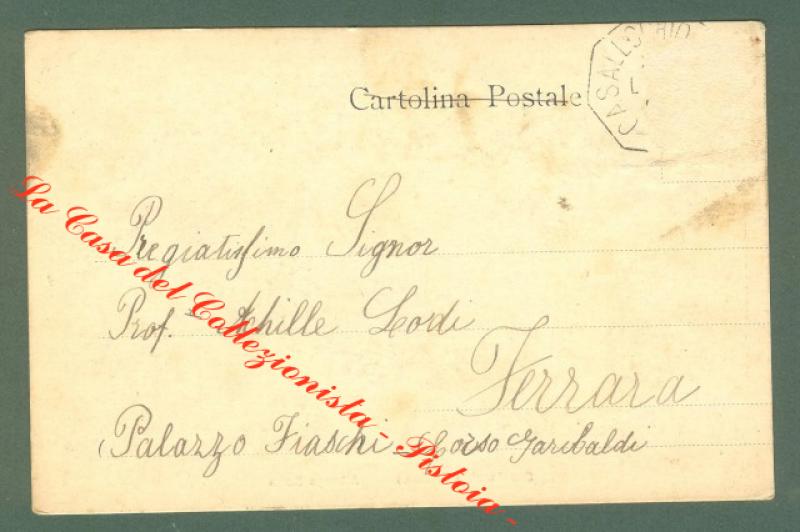 CASALECCHIO
Cartolina Postale
Pregiatissimo Signor
Prof. Achille Lodi
Ferrara
Palazzo Fiaschi Corso Garibaldi
La Casa del Collezionista - Pistoia -